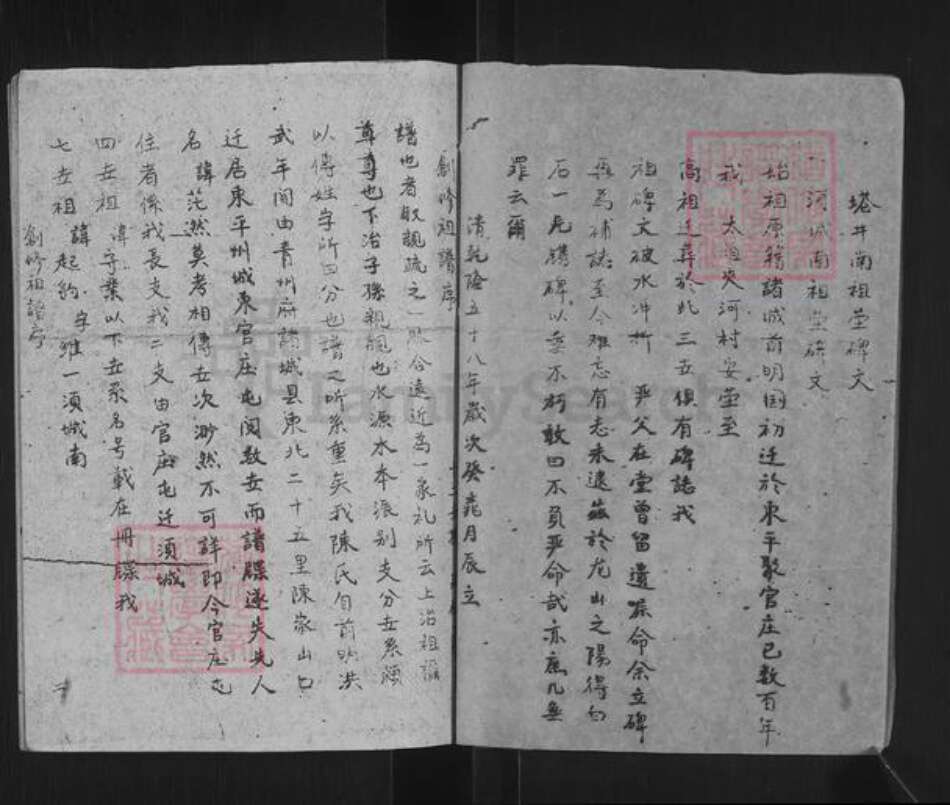 塔井南祖茔碑文
須城南祖茔碑文
始祖原籍諸城前明国初迁於東平聚官庄已数百年
我 太祖夾河村安茔至
高祖迁葬於北三五俱有碑誌我
祖碑文被水冲 严父在堂曾留遺嘱命余立碑
為補誌至今难忘有志未遠兹於龙山之陽得白
石一 鐫碑以垂不朽敢曰不負严命哉亦庶几無
罪云爾
清乾隆五十八年歲次癸 月辰立
創修祖譜序
譜也者敘親疏之一脉合遠近為一家礼所云上治祖禰
尊尊也下治子孫親親也水源木本派别支分世系須
以傳姓字所以分也譜之所系重矣我陳氏自前明洪
武年间由青州府諸城县東北二十五里陳家山口
迁居東平州城東官庄屯阅数世而譜牒遂失先人
名諱茫然莫考相傳世次渺然不可詳即今官庄屯
住者係我長支我二支由官庄屯迁須城
四世祖 諱守業以下世系名号載在册牒我
七世祖 諱起約字維一須城南
創修祖譜序
FamilySearch